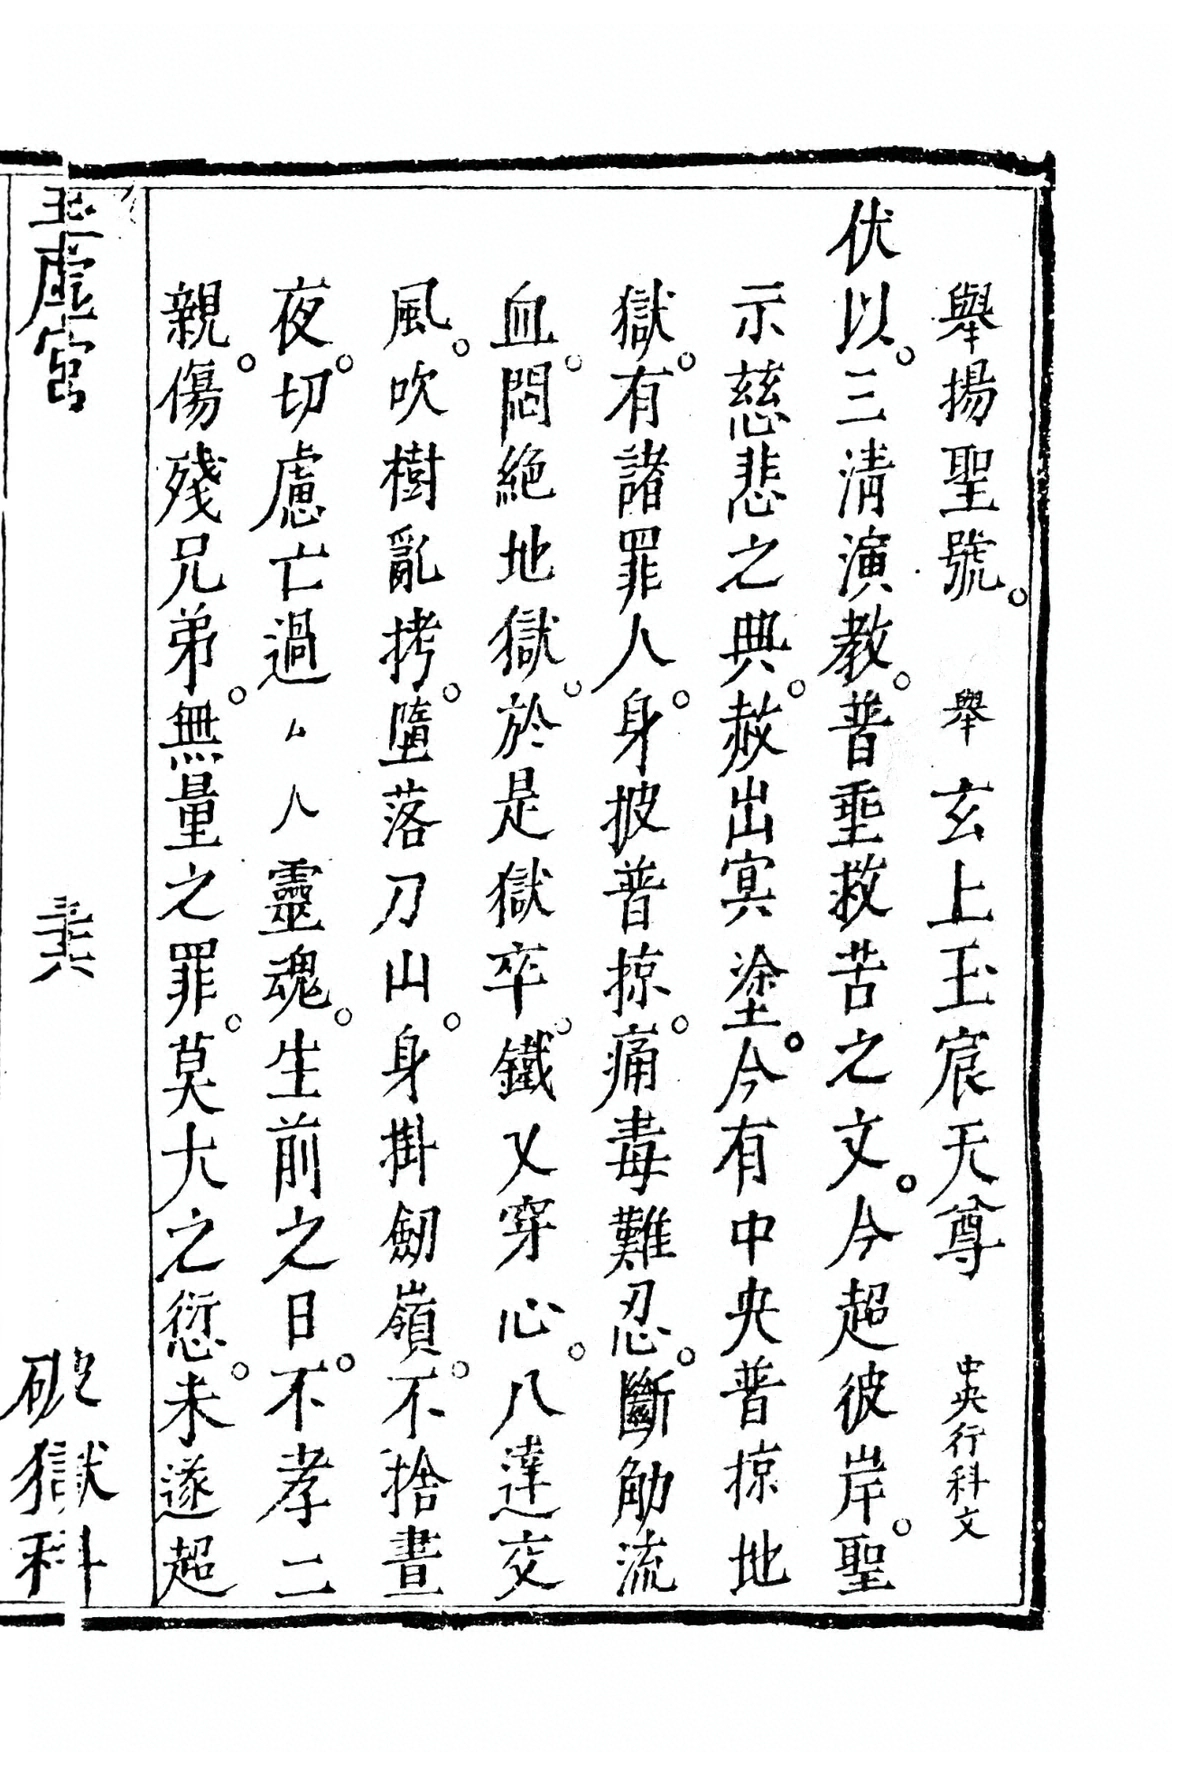 舉揚聖號。 舉玄上玉宸天尊 中央行科文
伏以。三清演教。普垂救苦之文。今超彼岸。聖
示慈悲之典。赦出冥塗。今有中央普掠地
獄。有諸罪人。身披普掠。痛毒難忍。斷觔流
血。悶絕地獄。於是獄卒。鐵乂穿心。八達交
風。吹樹亂拷。墮落刀山。身掛劒嶺。不捨晝
夜。切慮亡過厶人靈魂。生前之日。不孝二
親。傷殘兄弟。無量之罪。莫大之愆。未遂超
玉虛宮
破獄科